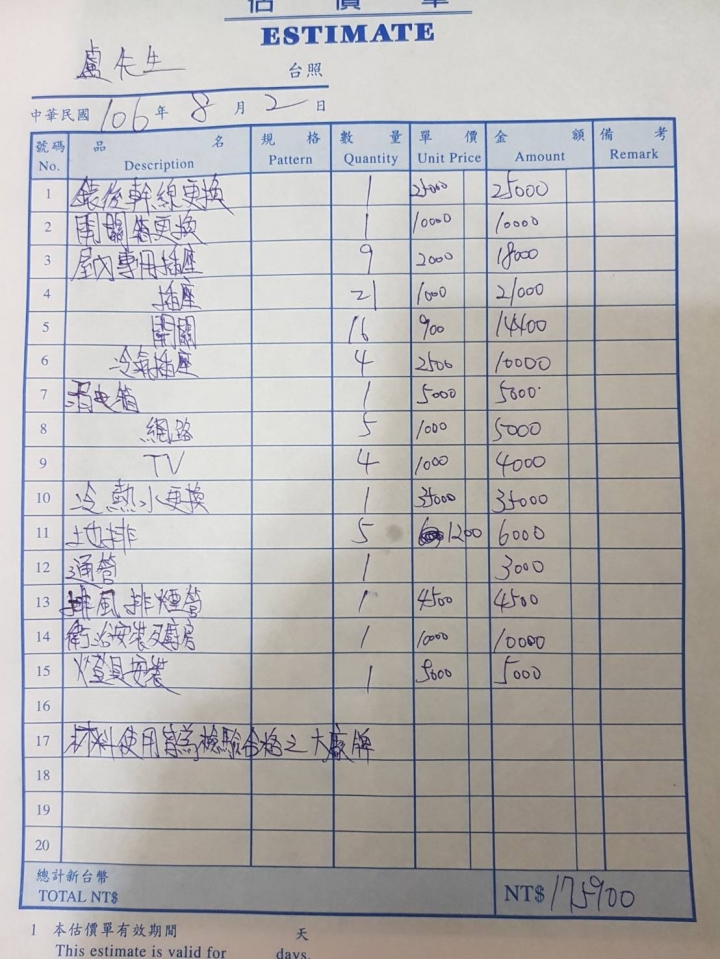 估價單
ESTIMATE
盧先生 台照
中華民國 106 年 8 月 2 日
號碼 品名 規格 數量 單價 金額 備考
No. Description Pattern Quantity Unit Price Amount Remark
1 錶後幹線更換 1 25000 25000
2 開關箱更換 1 10000 10000
3 屋內專用插座 9 2000 18000
4 插座 21 1000 21000
5 開關 16 900 14400
6 冷氣插座 4 2500 10000
7 弱电箱 1 5000 5000
8 網路 5 1000 5000
9 TV 4 1000 4000
10 冷熱水更換 1 35000 35000
11 土地排 5 1200 6000
12 通管 1 3000
13 排風排煙管 1 4500 4500
14 衛浴安裝及廚房 1 10000 10000
15 燈具安裝 1 5000 5000
16
17 材料使用皆為檢驗合格之大廠牌
18
19
20
總計新台幣
TOTAL NT$ NT$ 175900
1 本估價單有效期間 天
This estimate is valid for days.